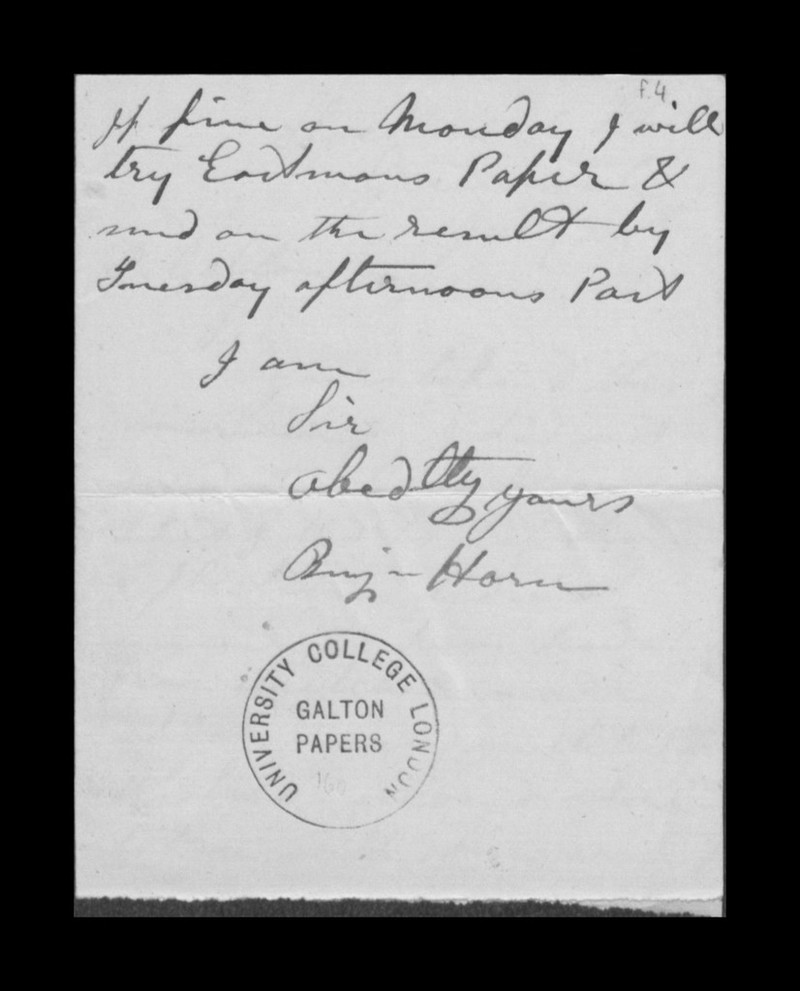 f.4
If fine on Monday I will
try Eastmans Paper &
send on the result by
Tuesday afternoons Post
I am
Sir
Obedtly yours
Benjn Horn
UNIVERSITY COLLEGE LONDON
GALTON
PAPERS
160